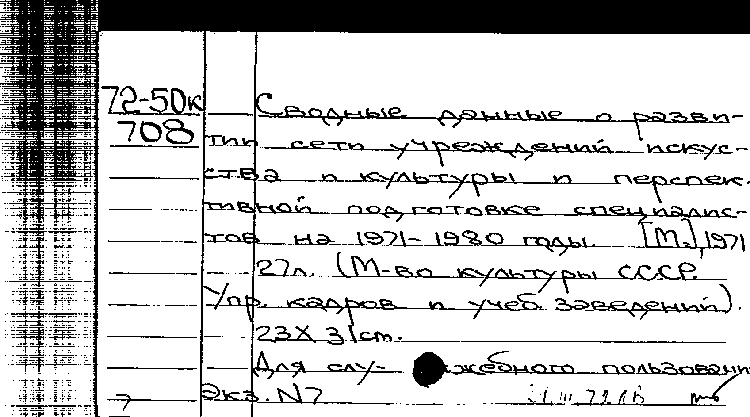 72-50к
708
Сводные данные о разви-
тии сети учреждений искус-
ства и культуры и перспек-
тивной подготовке специалис-
тов на 1971-1980 годы. [М.], 1971
27л. (М-во культуры СССР.
Упр. кадров и учеб. заведений).
23X31cm.
Для слу- жебного пользовани
Экз. N7
7